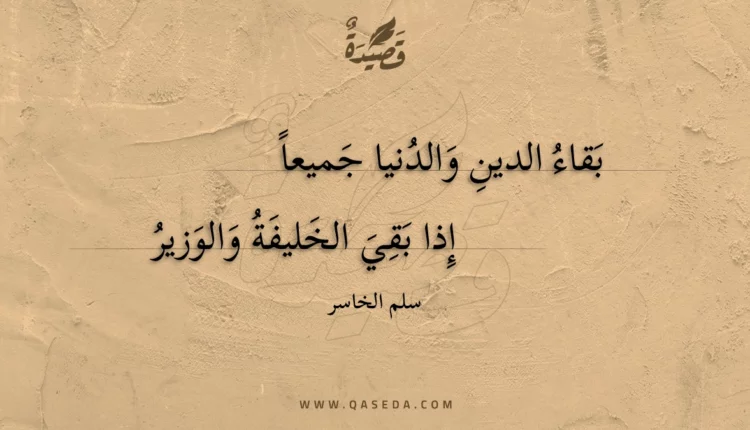 قَصِيدَةٌ
بَقاءُ الدينِ وَالدُنيا جَميعاً
إِذا بَقِيَ الخَليفَةُ وَالوَزيرُ
سلم الخاسر
WWW.QASEDA.COM